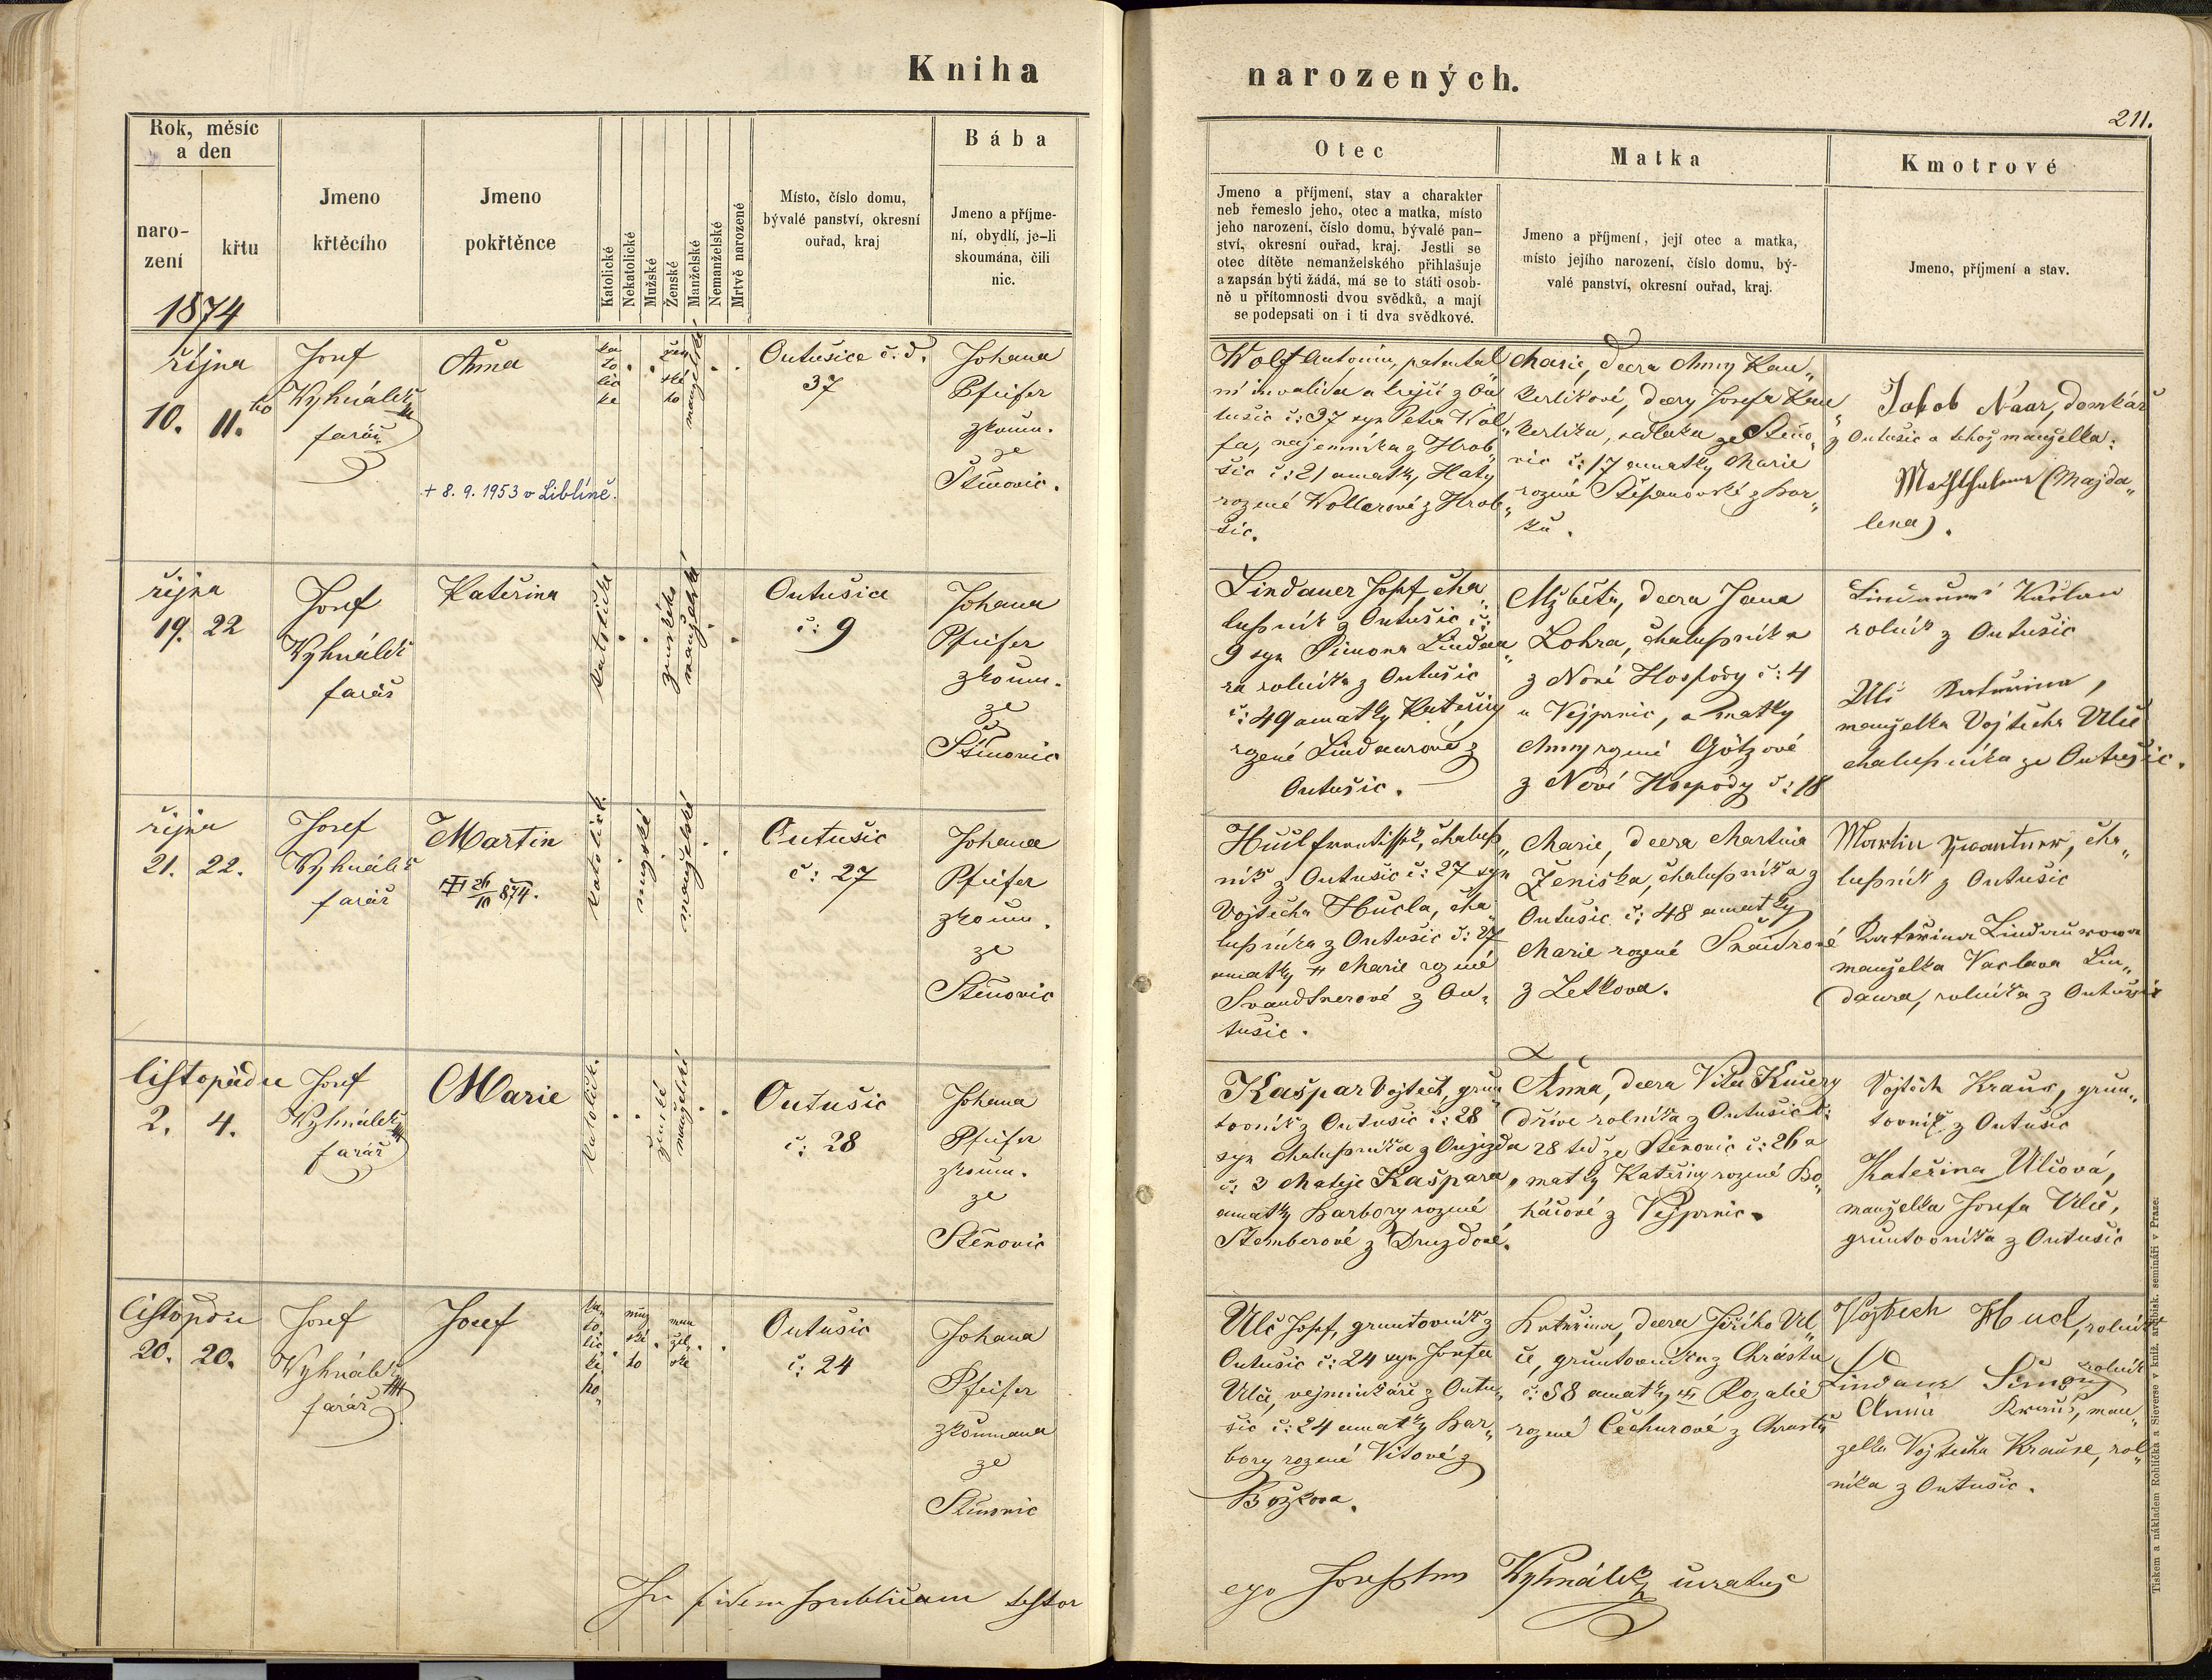 Kniha narozených.
211.
Rok, měsíc
a den
naro-
zení
křtu
1874
Jmeno
křtěcího
Jmeno
pokřtěnce
Katolické
Nekatolické
Mužské
Ženské
Manželské
Nemanželské
Mrtvě narozené
Místo, číslo domu,
bývalé panství, okresní
ouřad, kraj
Bába
Jmeno a příjme-
ní, obydlí, je-li
skoumána, čili
nic.
Otec
Jmeno a příjmení, stav a charakter
neb řemeslo jeho, otec a matka, místo
jeho narození, číslo domu, bývalé pan-
ství, okresní ouřad, kraj. Jestli se
otec dítěte nemanželského přihlašuje
a zapsán býti žádá, má se to státi osob-
ně u přítomnosti dvou svědků, a mají
se podepsati on i ti dva svědkové.
Matka
Jmeno a příjmení, její otec a matka,
místo jejího narození, číslo domu, bý-
valé panství, okresní ouřad, kraj.
Kmotrové
Jmeno, příjmení a stav.
října
10. 11.ho
Josef
Vyhnálek
farář
Anna
+ 8. 9. 1953 v Liblíně.
ka
to
lic
ke
žen
ské
ho
manželské
Outušice č. d.
37
Johana
Pfeifer
zkoum.
ze
Štěnovic.
Wolf Antonín, patental
ní invalida a krejčí z Ou
tušic č: 37 syn Petra Wol„
fa, najemníka z Hrob„
šic č: 21 a matky Katy
rozené Wollerové z Hrob„
šic.
Marie, dcera Anny Kau„
kerlíkové, dcery Josefa Kau„
kerlíka, sedláka ze Štěno„
vic č: 17 a matky Marie
rozené Štěpanovské z Bor„
ků.
Jakob Naar, domkář
z Outušic a tehož manželka.
(Majda„
lena).
října
19. 22
Josef
Vyhnálek
farář
Kateřina
katolické
ženského
manželské
Outušice
č: 9
Johana
Pfeifer
zkoum.
ze
Štěnovic
Lindauer Josef, cha„
lupník z Outušic č:
9 syn Šimona Lindau„
ra rolníka z Outušic
č: 49 a matky Kateřiny
rozené Lindaurové z
Outušic.
Alžběta, dcera Jana
Lohra, chalupníka
z Nové Hospody č: 4
u Vejprnic, a matky
Anny rozené Götzové
z Nové Hospody č: 18
rolník z Outušic
Ulč Kateřina,
manželka Vojtěcha Ulče
chalupníka ze Outušic.
října
21. 22.
Josef
Vyhnálek
farář
Martin
26/10 874.
katolick.
mužské
manželské
Outušic
č: 27
Johana
Pfeifer
zkoum.
ze
Štěnovic
Hucl František, chalup„
ník z Outušic č: 27 syn
Vojtěcha Hucla, cha„
lupníka z Outušic č: 27
a matky Marie rozené
z Ou„
tušic.
Marie, dcera Martina
Ženiska, chalupníka z
Outušic č: 48 a matky
Marie rozené Šnaidrové
z Letkova.
Martin Zwantner, cha„
lupník z Outušic
Kateřina Lindaurowa
manželka Vaclava Lin„
daura, rolníka z Outušic
listopadu
2. 4.
Josef
Vyhnálek
farář
Marie
katolická
ženské
manželské
Outušic
č: 28
Johana
Pfeifer
zkoum.
ze
Štěnovic
Kašpar Vojtěch, grun„
tovník z Outušic č: 28
syn chalupníka z Oujezda
č: 3 Matěje Kašpara,
a matky Barbory rozené
Štemberové z Druzdové.
Anna, dcera Víta Kučery
dříve rolníka z Outušic č:
28 teď ze Štěnovic č: 26 a
matky Kateřiny rozené Bo„
háčové z Vejprnic.
Vojtěch Kraus, grun„
tovník z Outušic
Kateřina Ulčová,
manželka Josefa Ulče,
gruntovníka z Outušic
listopadu
20. 20.
Josef
Vyhnálek
farář
Josef
ka„
to
lic
ké
ho„
muž
ské
ho
man
žel„
ské
Outušic
č: 24
Johana
Pfeifer
zkoumana
ze
Štěnovic
Ulč Josef, gruntovník z
Outušic č: 24 syn Josefa
Ulče, vejminkáře z Outu„
šic č: 24 a matky Bar„
bory rozené Vítové z
Božkova.
Kateřina, dcera Jiřího Ul„
če, gruntovníka z Chrástu
č: 58 a matky Rozalie
rozené Čechurové z Chrástu
Vojtěch Hucl, rolník
Lindaur Šimon rolník
Anna Kraus, man„
želka Vojtěcha Krause, rol„
níka z Outušic.
In fidem publicam testor
ego Josephus Vyhnálek curatus
Tiskem a nákladem Rohlíčka a Sieverse v kníž. arcibisk. semináři v Praze.